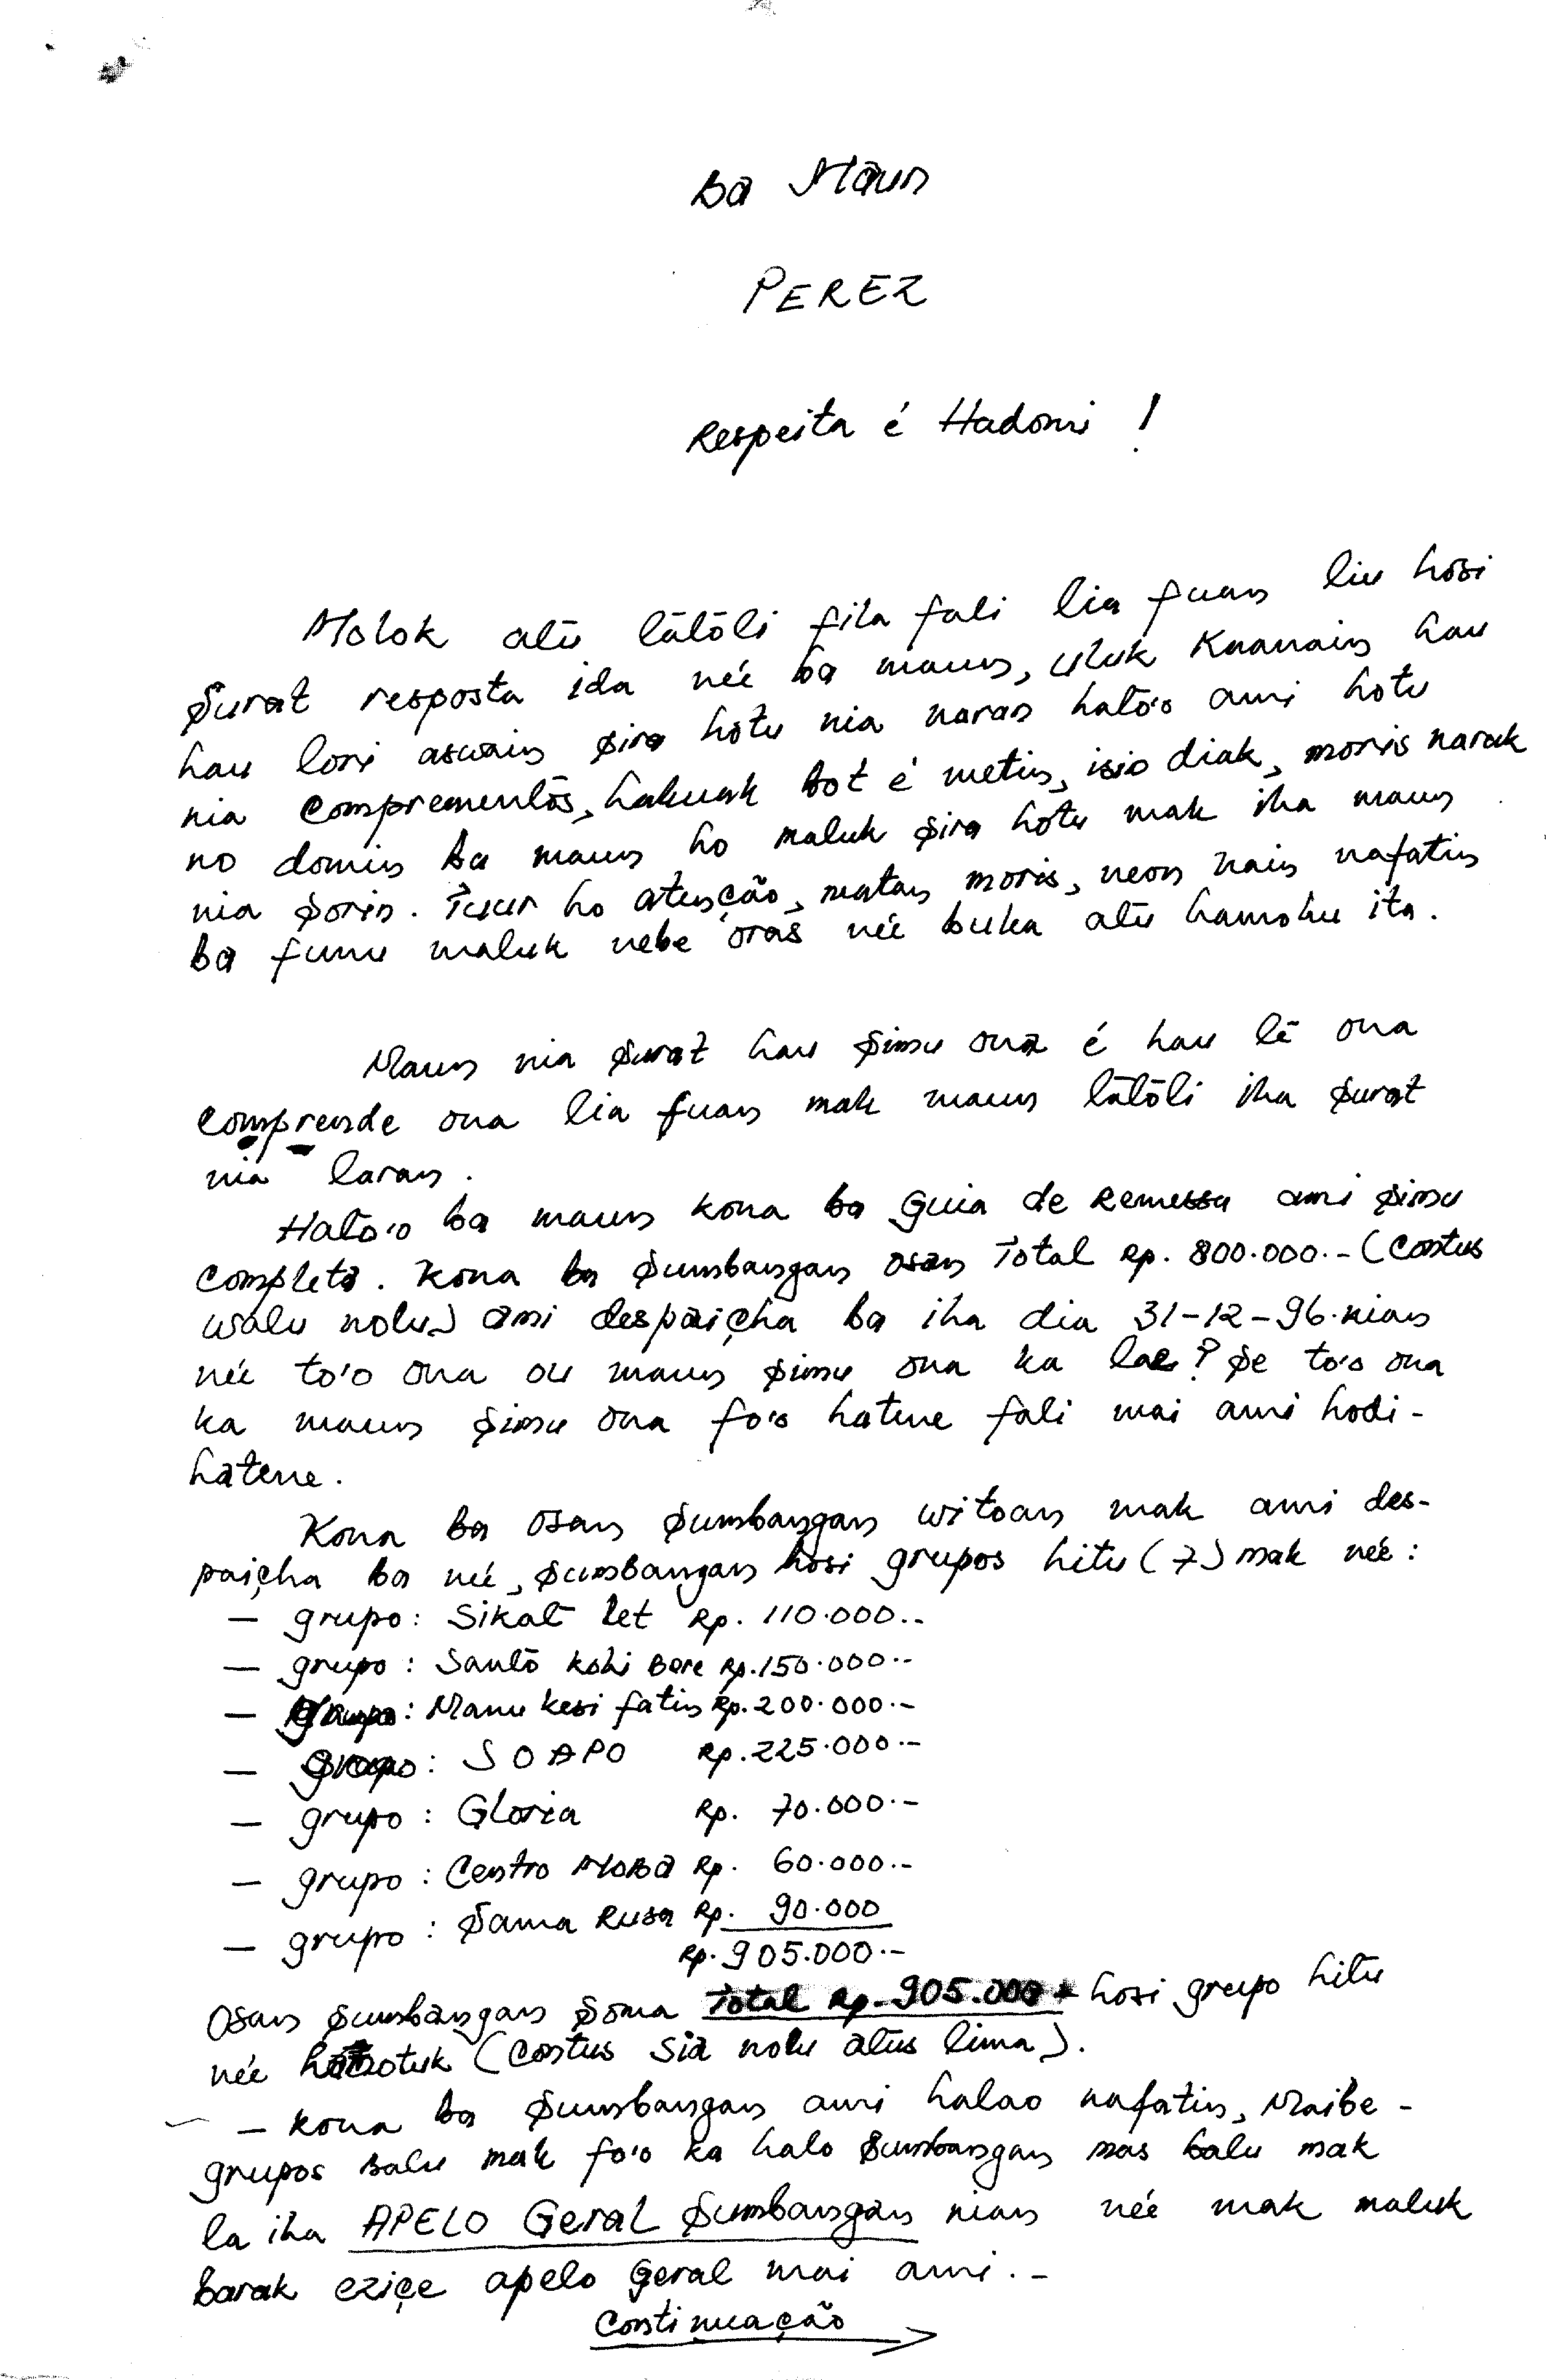 ba Maun
PEREZ
Respeita é Hadomi !
Molok atu lātōli fila fali lia fuan liu hosi
surat resposta ida neé ba maun, uluk knanain hau
hau lori aswain sira hotu nia naran hato'o ami hotu
nia comprementōs, hakuak bot é metin, isin diak, moris narak
no domin ba maun ho maluk sira hotu mak iha maun
nia sorin. Tuur ho atenção, matan moris, neon nain nafatin
ba funu maluk nebe oras neé buka atu hamohu ita.
Maun nia surat hau simu ona é hau lē ona
comprende ona lia fuan mak maun lātōli iha surat
nia laran.
Hato'o ba maun kona ba Guia de Remessa ami simu
completo. Kona ba sumbangan osan Total Rp. 800.000.- (Contus
walu nolu) ami despaiçha ba iha dia 31-12-96.nian
neé to'o ona ou maun simu ona ka lae? se to'o ona
ka maun simu ona fo'o hatene fali mai ami hodi-
hatene.
Kona ba osan sumbangan witoan mak ami des-
paiçha ba neé, sumbangan hosi grupos hitu (7) mak neé:
- grupo: Sikat let Rp. 110.000..
- grupo: Santō kohi Bere Rp.150.000.-
- grupo: Manu kesi fatin Rp.200.000.-
- grupo: SOAPO Rp.225.000.-
- grupo: Gloria Rp. 70.000.-
- grupo: Centro MoBa Rp. 60.000.-
- grupo: Sama Rusa Rp. 90.000
Rp. 905.000.-
Osan sumbangan soma Total Rp. 905.000 hosi grupo hitu
neé (Contus sia nolu atus lima).
- Kona ba sumbangan ami halao nafatin, Maibe-
grupos balu mak fo'o ka halo sumbangan mas balu mak
la iha APELO Geral sumbangan nian neé mak maluk
barak eziçe apelo geral mai ami.-
Continuação